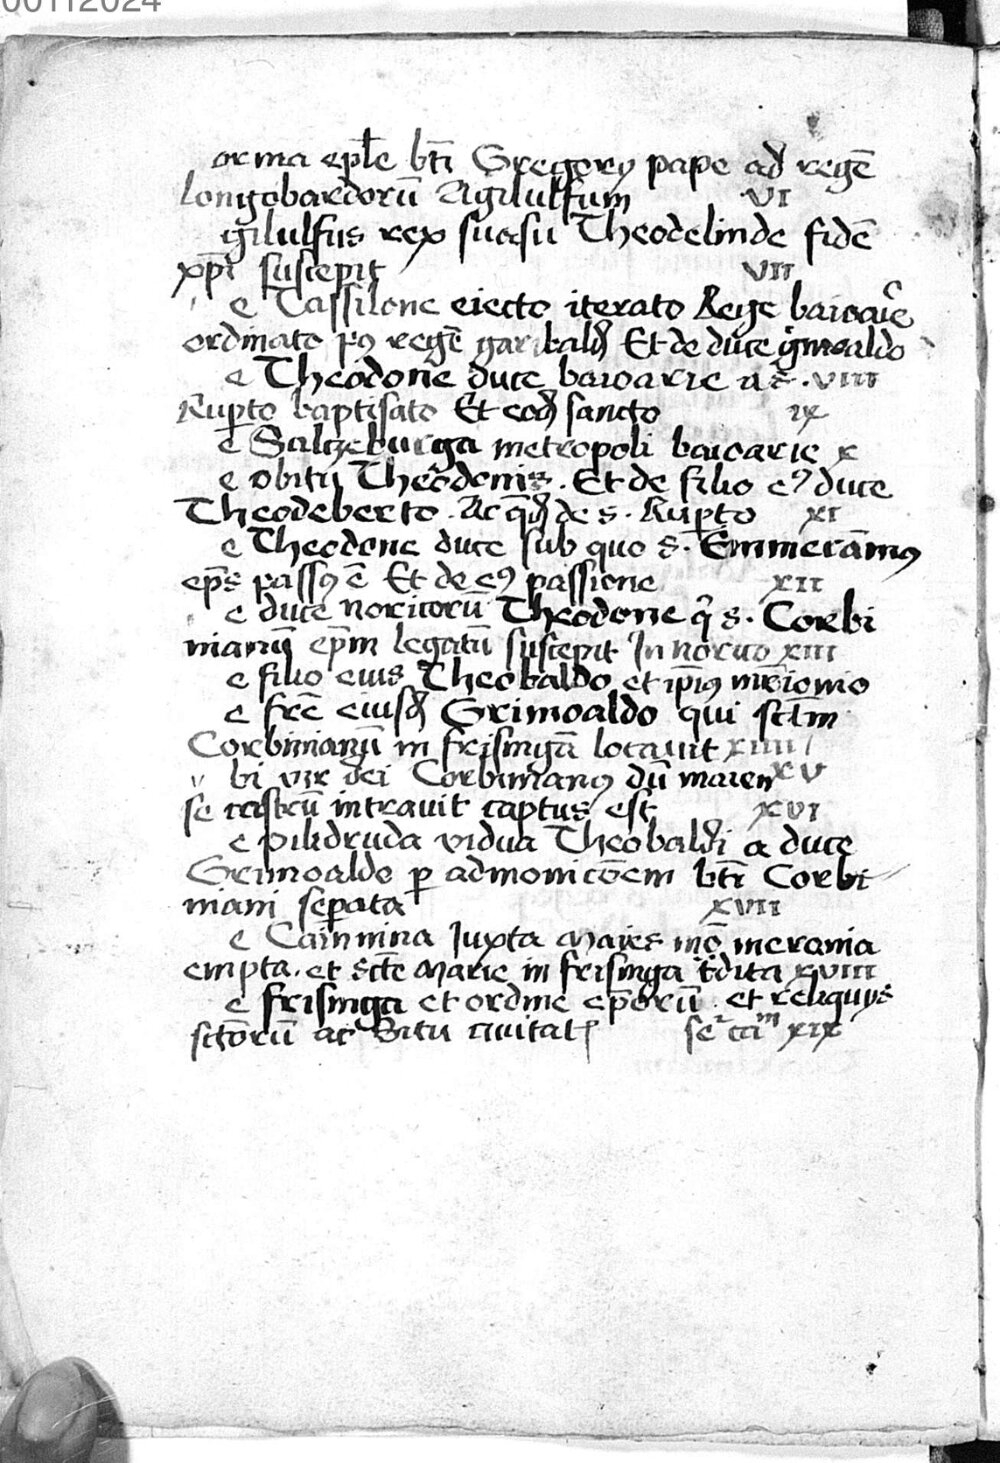 00112024
orma ep̄le bt̄i Gregorij pape ad regē
longobardorū Agilulfum VI
gilulfus rex suasu Theodelinde fidē
xp̄i suscepit VII
e Tassilone eiecto iterato Rege baioarie
ordinato p9 regē garibald Et de duce grimoaldo
e Theodone duce baioarie a s. VIII
Rup̱to baptisato Et eod sancto IX
e Saltzeburga metropoli baioarie X
e obitu Theodonis. Et de filio e9 duce
Theodeberto. Ac de s. Rup̱to XI
e Theodone duce sub quo s. Emmeram9
ep̄s pass9 ē Et de e9 passione XII
e duce noricorū Theodone q s. Corbi
nianū ep̄m legatū suscepit In norico XIII
e filio eius Theobaldo et ip̄ius
e fr̄e eiusd Grimoaldo qui sct̄m
Corbinianū in frisingā locauit XIIII
bi vir dei Corbinian9 dū maien XV
se castrū intrauit captus est XVI
e pilidruda vidua Theobaldi a duce
Grimoaldo p̱ admonicōem bt̄i Corbi
niani sep̱ata XVII
e Camina Juxta Maies merania
empta. et sct̄e Marie in frisinga t̄dita XVIII
e frisinga et ordine ep̄orū. et reliquijs
sct̄orū ac Situ ciuitat XIX